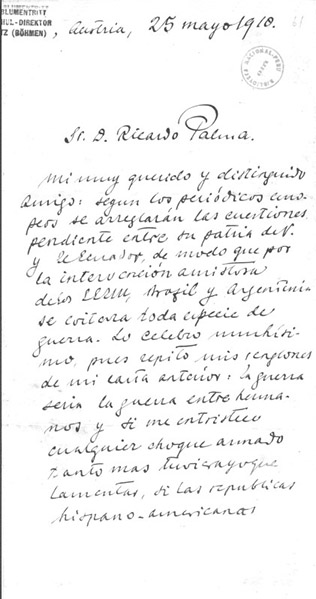 BLUMENTRITT
UL-DIREKTOR
TZ (BÖHMEN)
, Austria, 25 mayo 1910.
BIBLIOTECA NACIONAL - PERU
Sr. D. Ricardo Palma.
Mi muy querido y distinguido
amigo: segun los periódicos euro-
peos se arreglarán las cuestiones
pendiente entre su patria de V.
y el Ecuador, de modo que por
la intervención amistosa
de los EEUU, Brazil y Argentinia
se evitara toda especie de
guerra. Lo celebro muchísi-
mo, pues repito mis
de mi carta anterior: la guerra
seria la guerra entre herma-
nos y si me entristece
cualquier choque armado
tanto mas tuviera yo que
lamentar, si las republicas
hispano-americanas